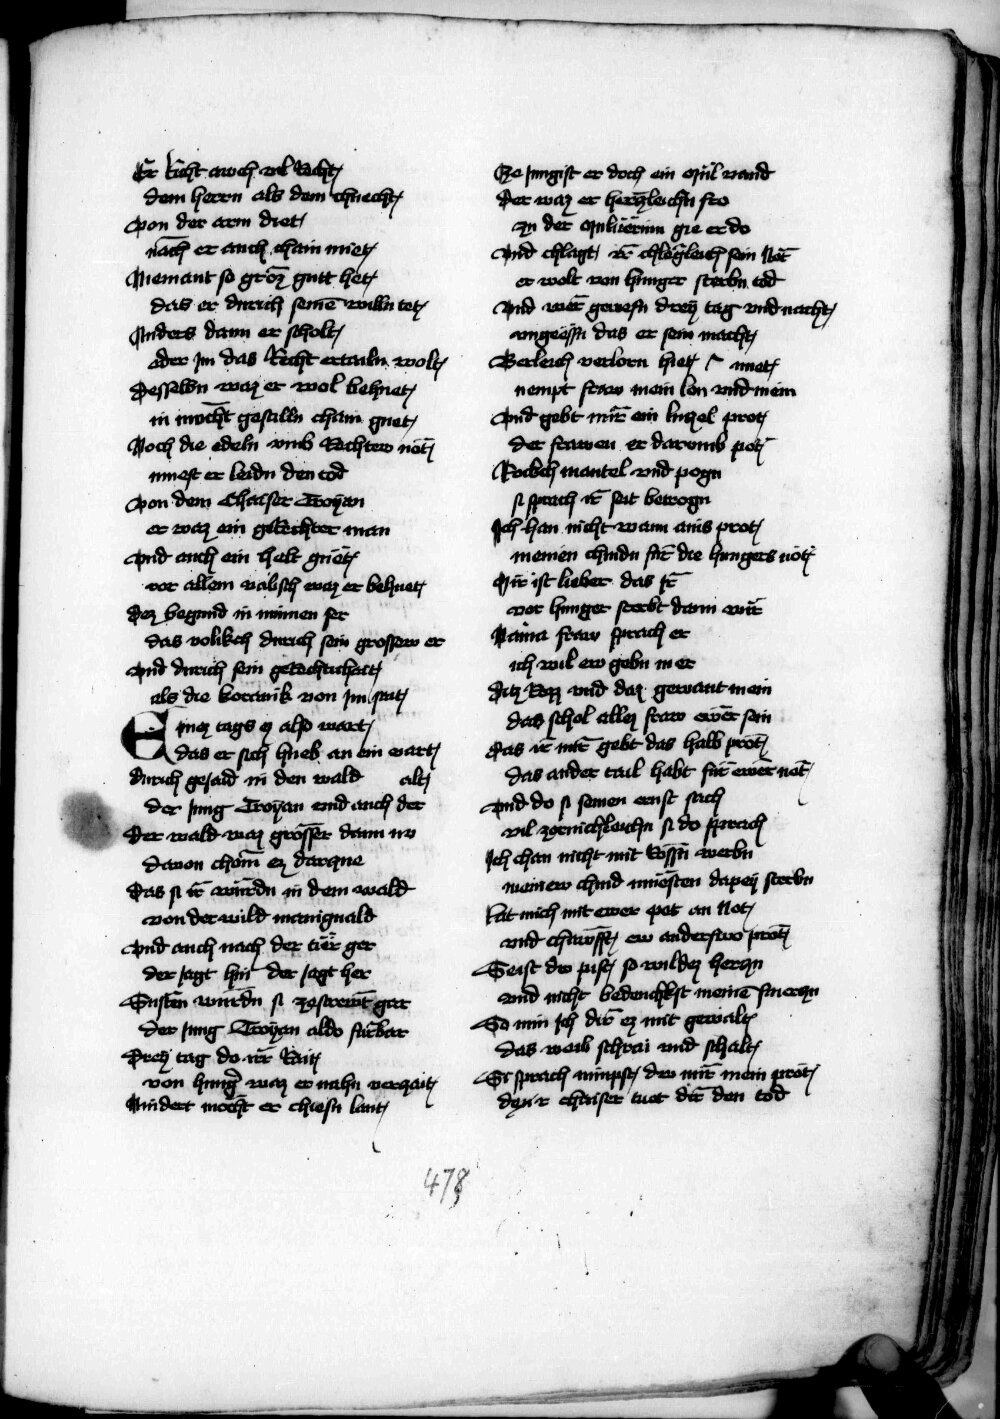 Er richt auch vil Recht
dem herrn als dem chnecht
Von der arm diet
nach er auch chain miet
Niemant so groz gutt het
das er durich seinē willn tet
Anders dann er scholt
oder im das Recht ertailn wolt
Desselbn waz er wol behuet
in mocht gestilln chain guet
Noch die edeln vmb Rechtew not
muest er leidn den tod
Von dem Chaiser Troyan
er waz ein gerechter man
Vnd auch ein helt guet
vor allem valsch waz er behuet
Dez begund in minnen ser
das volikch durich sein grossew er
Vnd durich sein gerechtichait
als die koronik von im sait
Einez tags ez also wart
das er sich hueb an ein vart
Durich gejaid in den wald alt
der jung Troyan vnd auch der
Der wald waz grosser dann nv
dauon chom ez darzue
Das si ir wurdn in dem wald
von der wild maniguald
Vnd auch nach der tier ger
der jagt hin der jagt her
Susten wurdn si zestrewt gar
der jung Troyan aldo furbar
Drey tag do irr Rait
von hungr waz er nahn verzait
Nindert mocht er chiesn laut
Ze jungist er doch ein mul vand
Der waz er herczleichn fro
zu der mulnerinn gie er do
Vnd chlagt ir chlegleich sein not
er wolt von hunger sterbn tod
Vnd wer gewesn drey tag vnd nacht
vngeessn das er sein macht
Gerleich verlorn hiet muet
nempt fraw mein lon vnd mein
Vnd gebt mir ein luczel prot
der frawen er darvmb pot
Rockch mantel vnd pogn
si sprach ir seit betrogn
Ich han nicht wann ains prot
meinen chindn fur die hungers not
Mir ist lieber das ir
vor hunger sterbt dann wir
Naina fraw sprach er
ich wil ew gebn mer
Ditz Rozz vnd daz gewant mein
das schol allez fraw ewer sein
Das ir mir gebt das halb prot
das ander tail habt fur ewer not
Vnd do si seinen ernst sach
vil zornichleichn si do sprach
Ich chan nicht mit Rossn werbn
meinew chind muesten dapey sterbn
Lat mich mit ewer pet an not
vnd chawfft ew anderswo prot
Seist dw pist so wildez herczn
vnd nicht bedenchkst meinē smerczn
So nim ich dir ez mit gewalt
das weib schrai vnd schalt
Si sprach nimpst dw mir mein prot
der chaiser tuet dir den tod
478